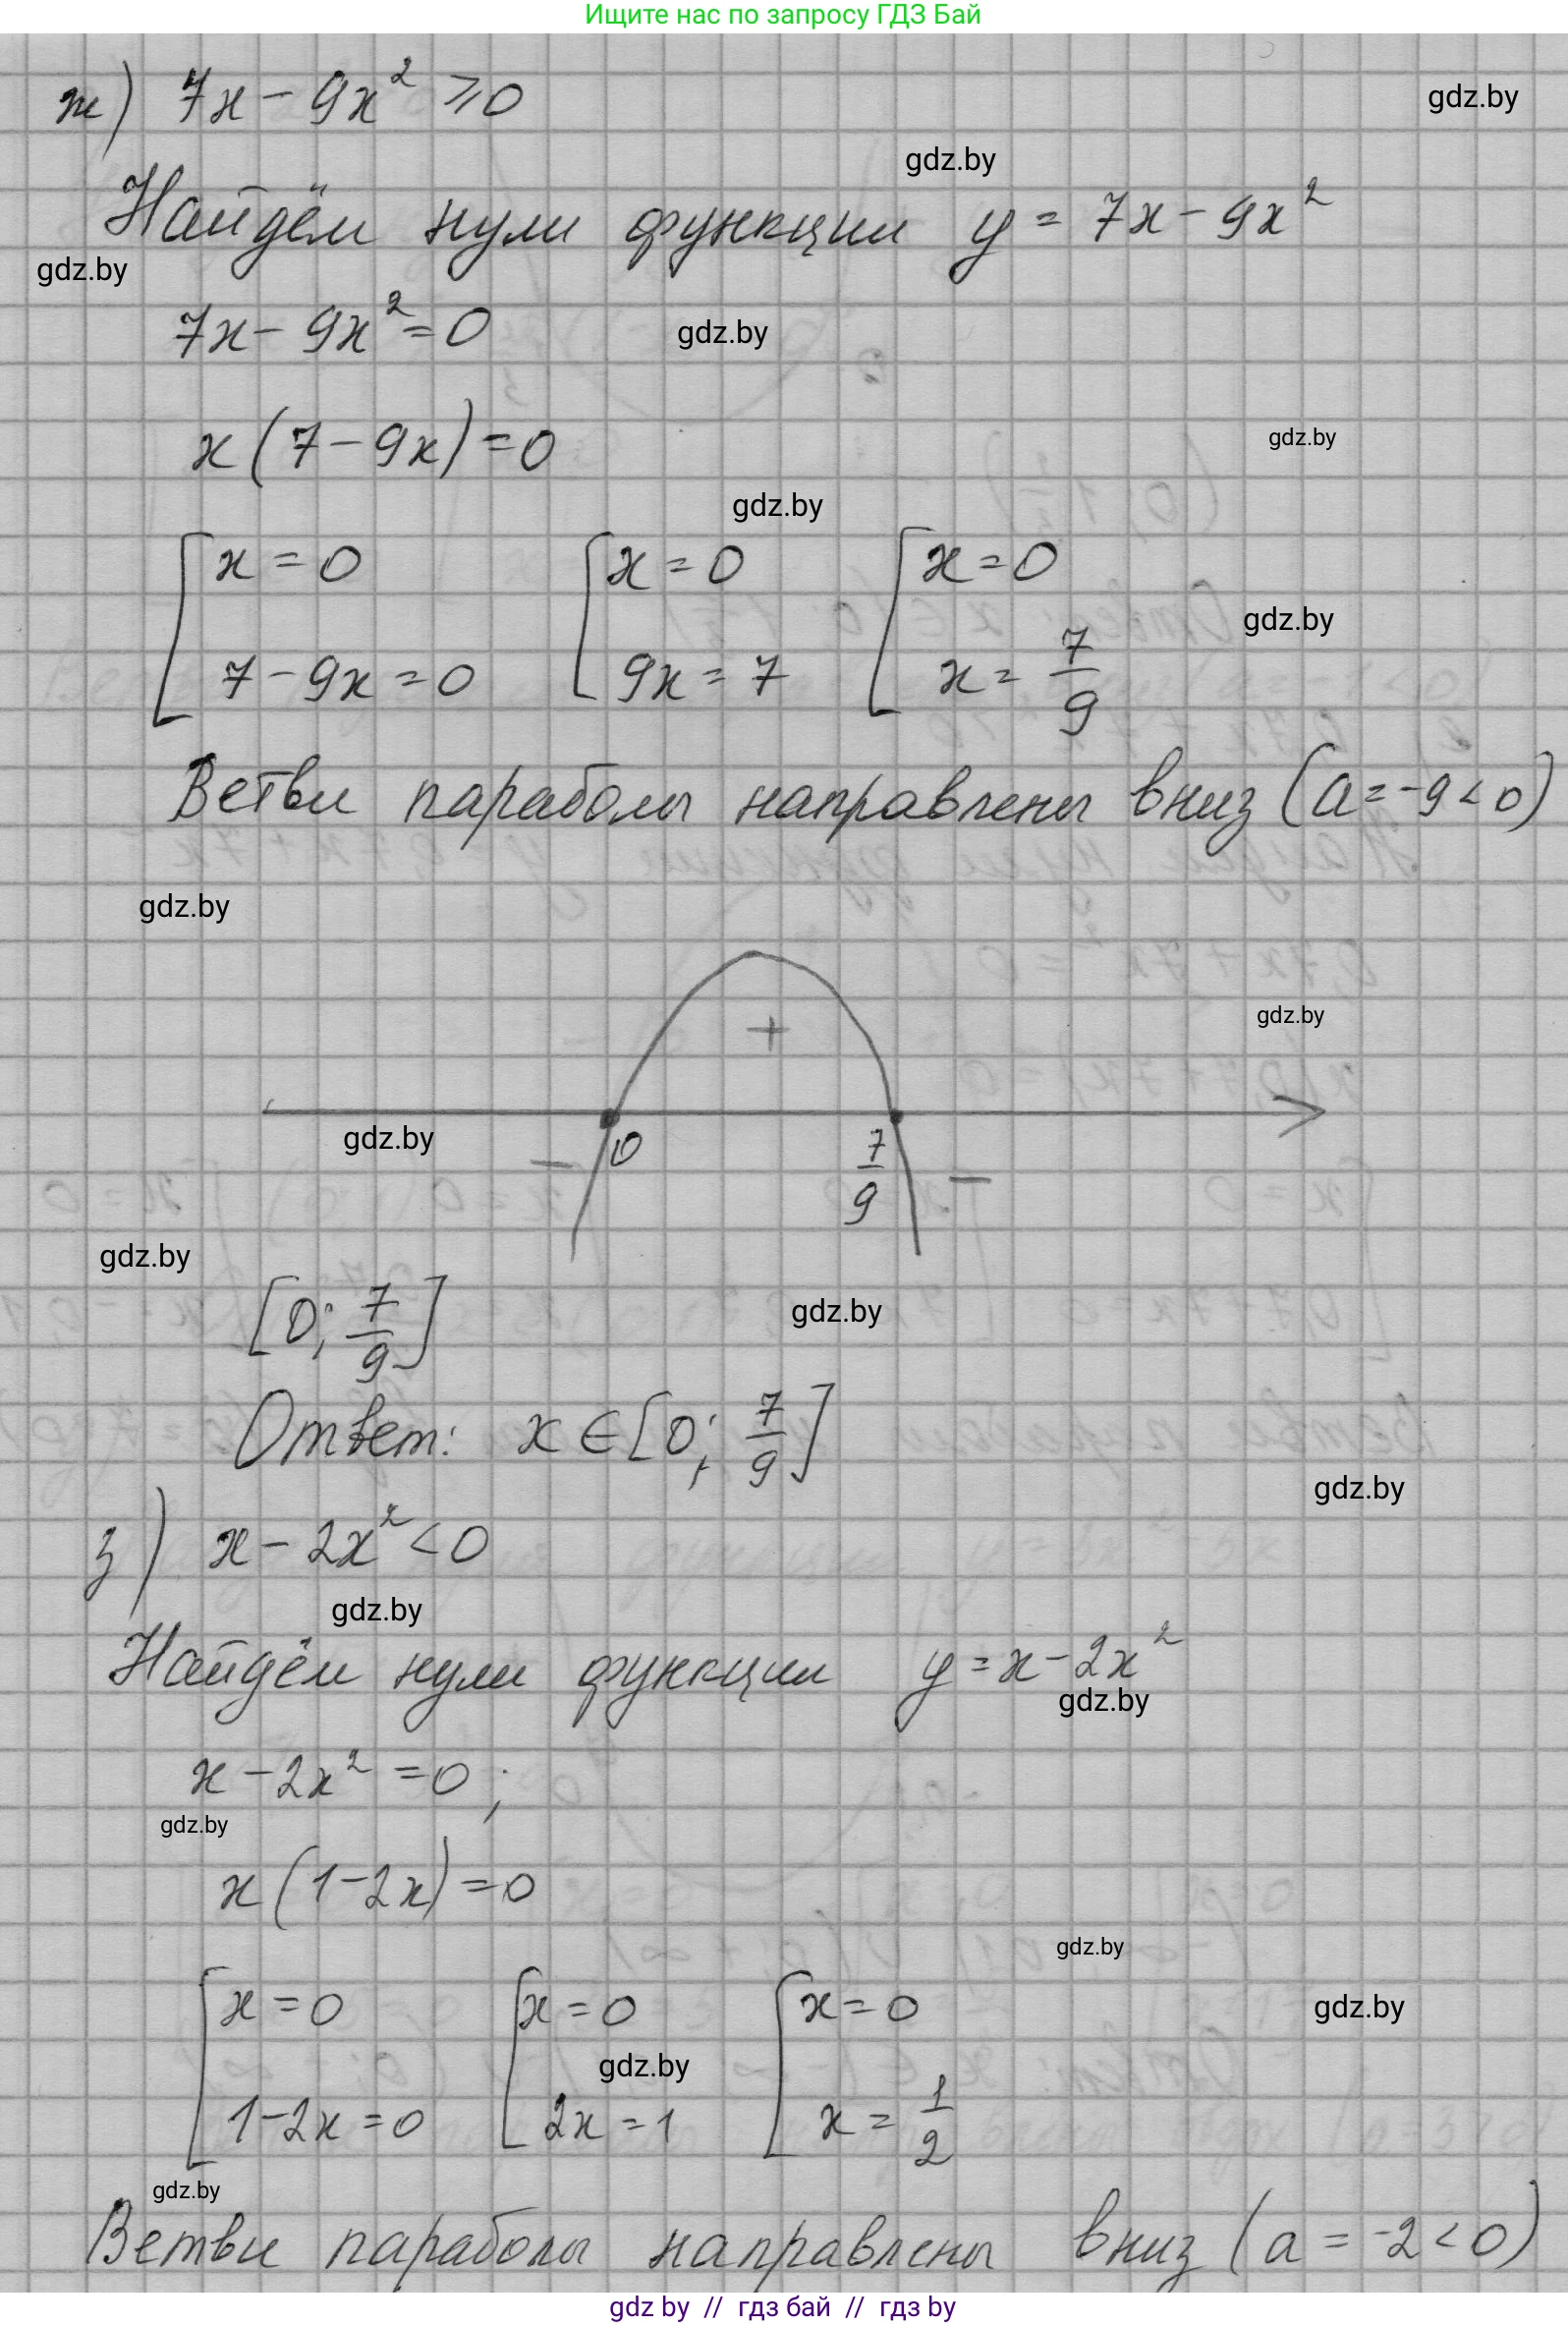 Ищите нас по запросу ГДЗ Бай
ж) 7x - 9x² ⩾ 0
gdz.by
gdz.by
Найдём нули функции y = 7x - 9x²
gdz.by
7x - 9x² = 0
gdz.by
x(7 - 9x) = 0
gdz.by
gdz.by
[x = 0 [x = 0 [x = 0
gdz.by
7 - 9x = 0 9x = 7 x = 7/9
Ветви параболы направлены вниз (a = -9 < 0)
gdz.by
gdz.by
+
gdz.by
- 0 7/9 -
gdz.by
[0; 7/9]
gdz.by
Ответ: x ∈ [0; 7/9]
gdz.by
з) x - 2x² < 0
gdz.by
Найдём нули функции y = x - 2x²
gdz.by
x - 2x² = 0;
gdz.by
x(1 - 2x) = 0
gdz.by
[x = 0 [x = 0 [x = 0
gdz.by
gdz.by
1 - 2x = 0 2x = 1 x = 1/2
gdz.by
Ветви параболы направлены вниз (a = -2 < 0)
gdz by // гдз бай // гдз by